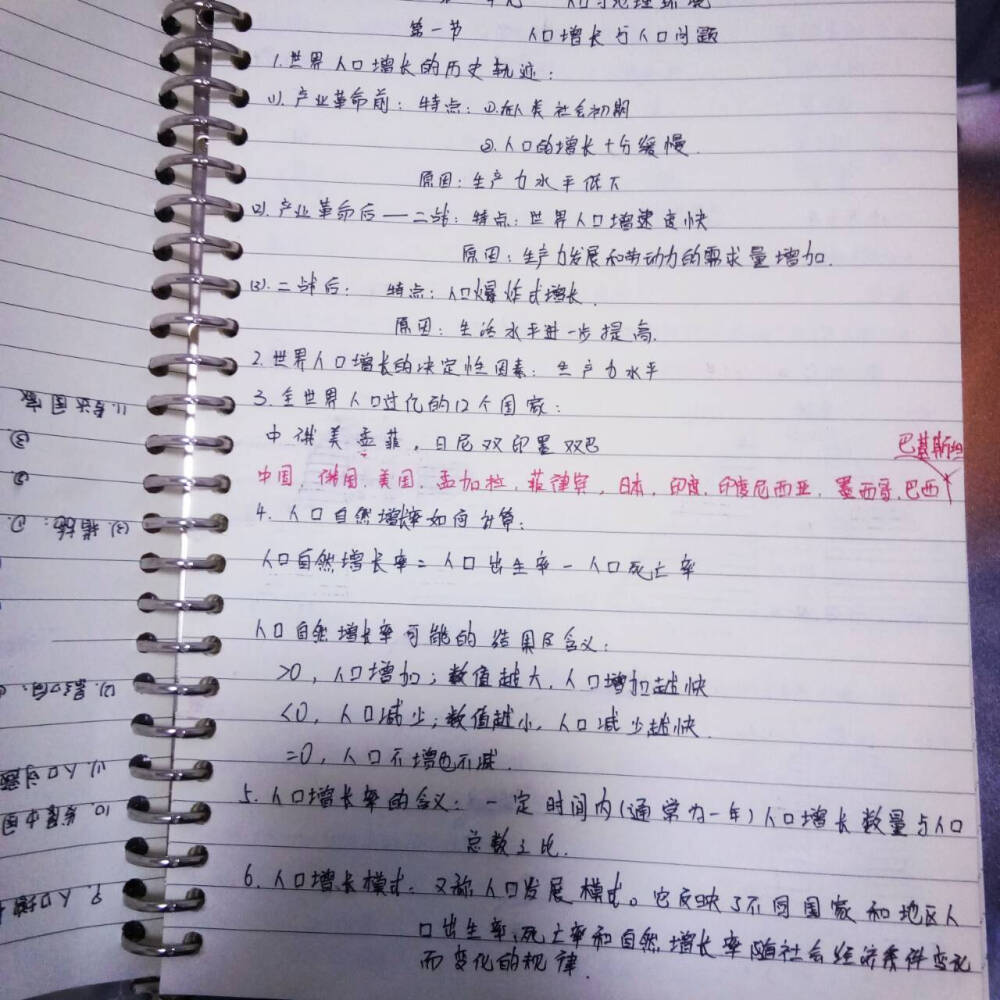 人口与地理环境
第一节 人口增长与人口问题
1.世界人口增长的历史轨迹：
(1).产业革命前：特点：①.在人类社会初期
②.人口的增长十分缓慢.
原因：生产力水平低下
(2).产业革命后——二战：特点：世界人口增速度快
原因：生产力发展和劳动力的需求量增加.
(3).二战后：特点：人口爆炸式增长.
原因：生活水平进一步提高.
2.世界人口增长的决定性因素：生产力水平
3.全世界人口过亿的12个国家：
中俄美孟菲，日尼双印墨双巴
巴基斯坦
中国.俄国.美国.孟加拉.菲律宾，日本.印度.印度尼西亚.墨西哥.巴西
4.人口自然增长率如何计算：
人口自然增长率=人口出生率-人口死亡率
人口自然增长率可能的结果及含义：
>0，人口增加；数值越大，人口增加越快
<0，人口减少；数值越小，人口减少越快.
=0，人口不增也不减.
5.人口增长率的含义：一定时间内(通常为一年)人口增长数量与人口
总数之比.
6.人口增长模式：又称人口发展模式。它反映了不同国家和地区人
口出生率、死亡率和自然增长率随社会经济条件变化
而变化的规律.
(3).措施：①
②
③